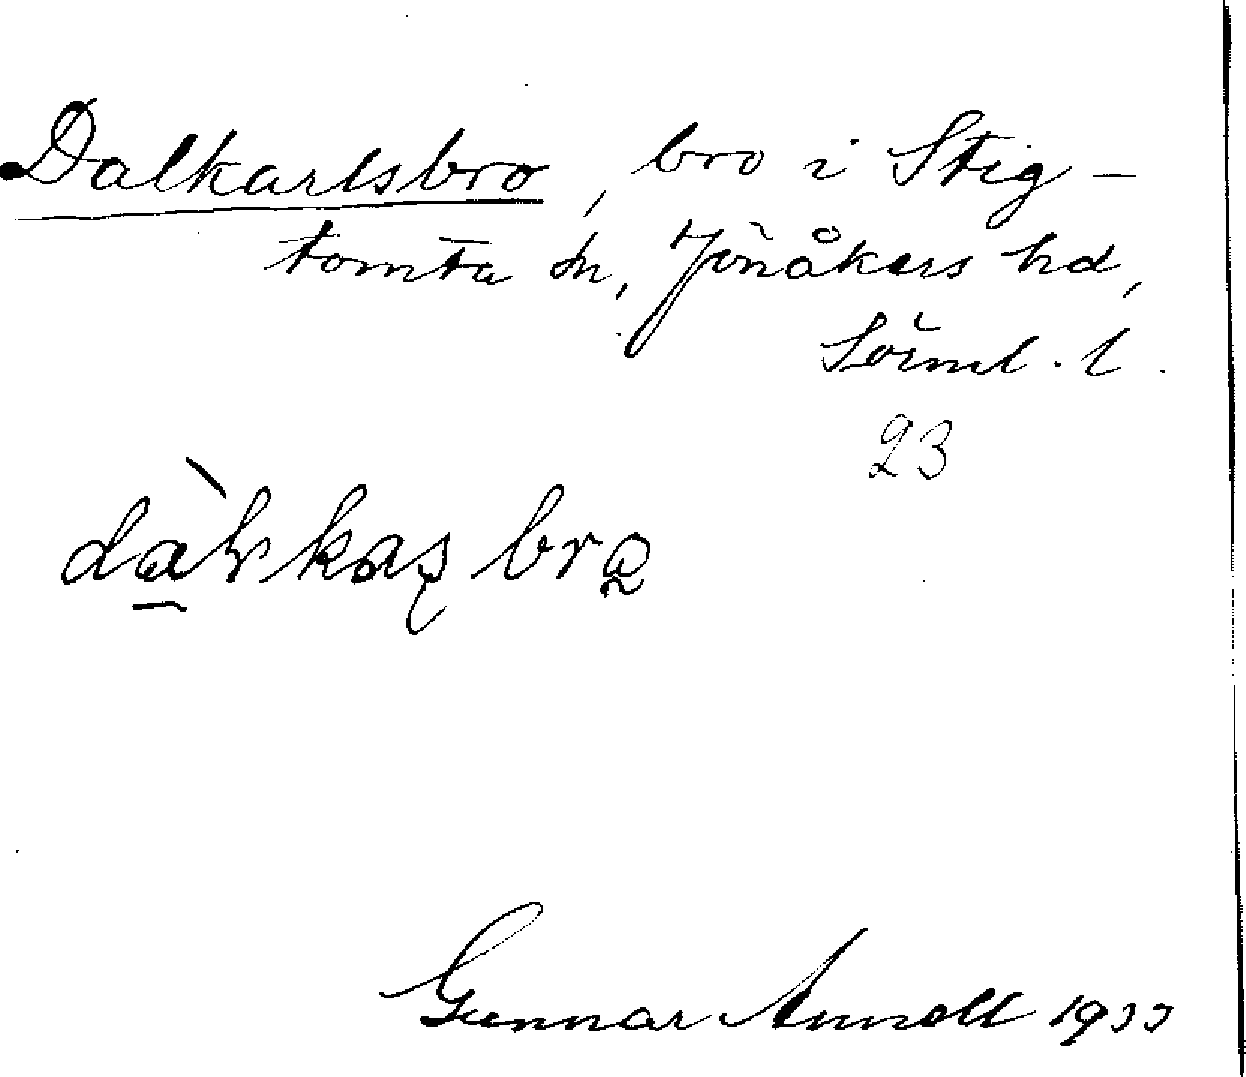 Dalkarlsbro, bro i Stig-
tomta sn, Jönåkers hd,
Sörml. l.
23
Gunnar Annell 1933